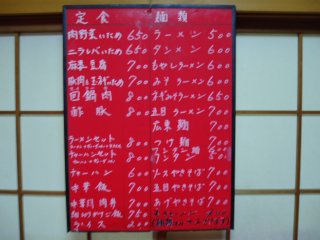 定食
肉野菜いため 650
ニラレバいため 650
麻婆豆腐 700
豚肉と玉子いため 700
回鍋肉 800
酢豚 800
ラーメンセット 800
チャーハンセット 800
チャーハン 600
中華飯 700
中華丼
750
ライス 200
麺類
ラーメン 500
タンメン 600
もやしラーメン 600
みそラーメン 600
ネギみそラーメン 650
五目ラーメン 700
広東麺 700
つけ麺 700
ワンタン 500
ソースやきそば 700
五目やきそば 700
あげやきそば 700